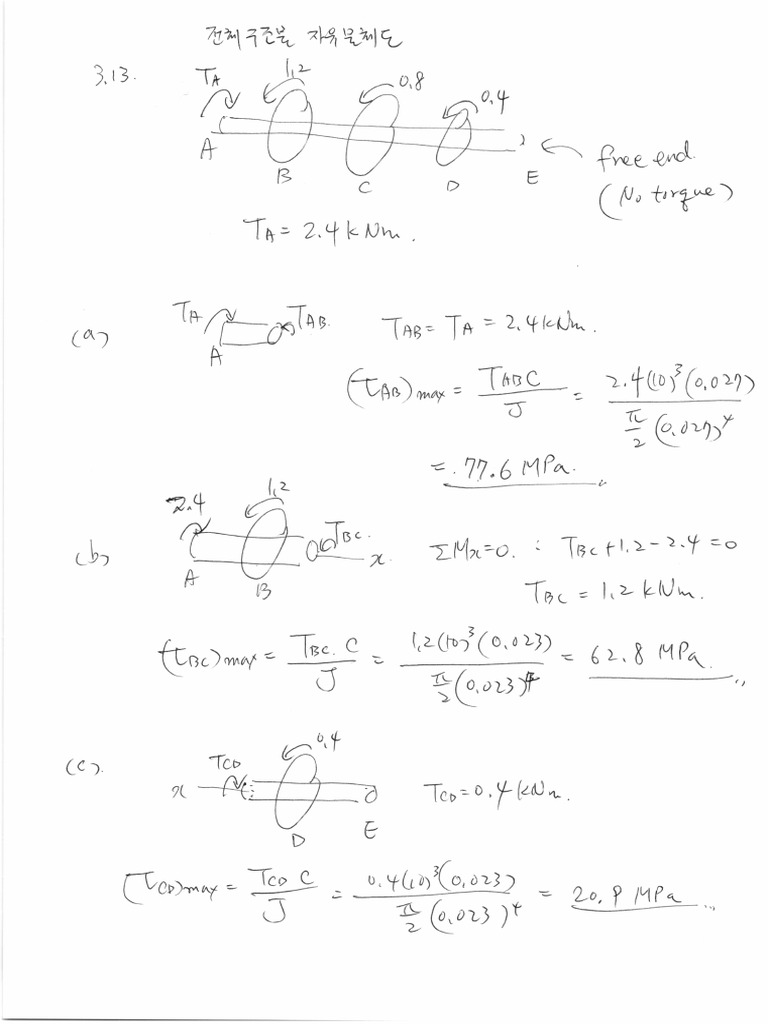 전체구조물 자유물체도
3.13.
T_A 1,2 0,8 0,4
A B C D E
free end.
(No torque)
T_A = 2.4 kNm.
(a) T_A A T_AB. T_AB = T_A = 2.4 kNm.
(τ_AB)max = T_AB C / J = 2.4(10)^3(0.027) / π/2 (0.027)^4
= 77.6 MPa.
(b) 2.4 A 1,2 B T_BC. x. ΣMx=0. : T_BC + 1.2 - 2.4 = 0
T_BC = 1,2 kNm.
(τ_BC)max = T_BC. C / J = 1,2(10)^3(0,023) / π/2 (0,023)^4 = 62.8 MPa.
(c). x T_CD 0,4 D E T_CD = 0.4 kNm.
(τ_CD)max = T_CD C / J = 0.4(10)^3(0,023) / π/2 (0,023)^4 = 20.9 MPa